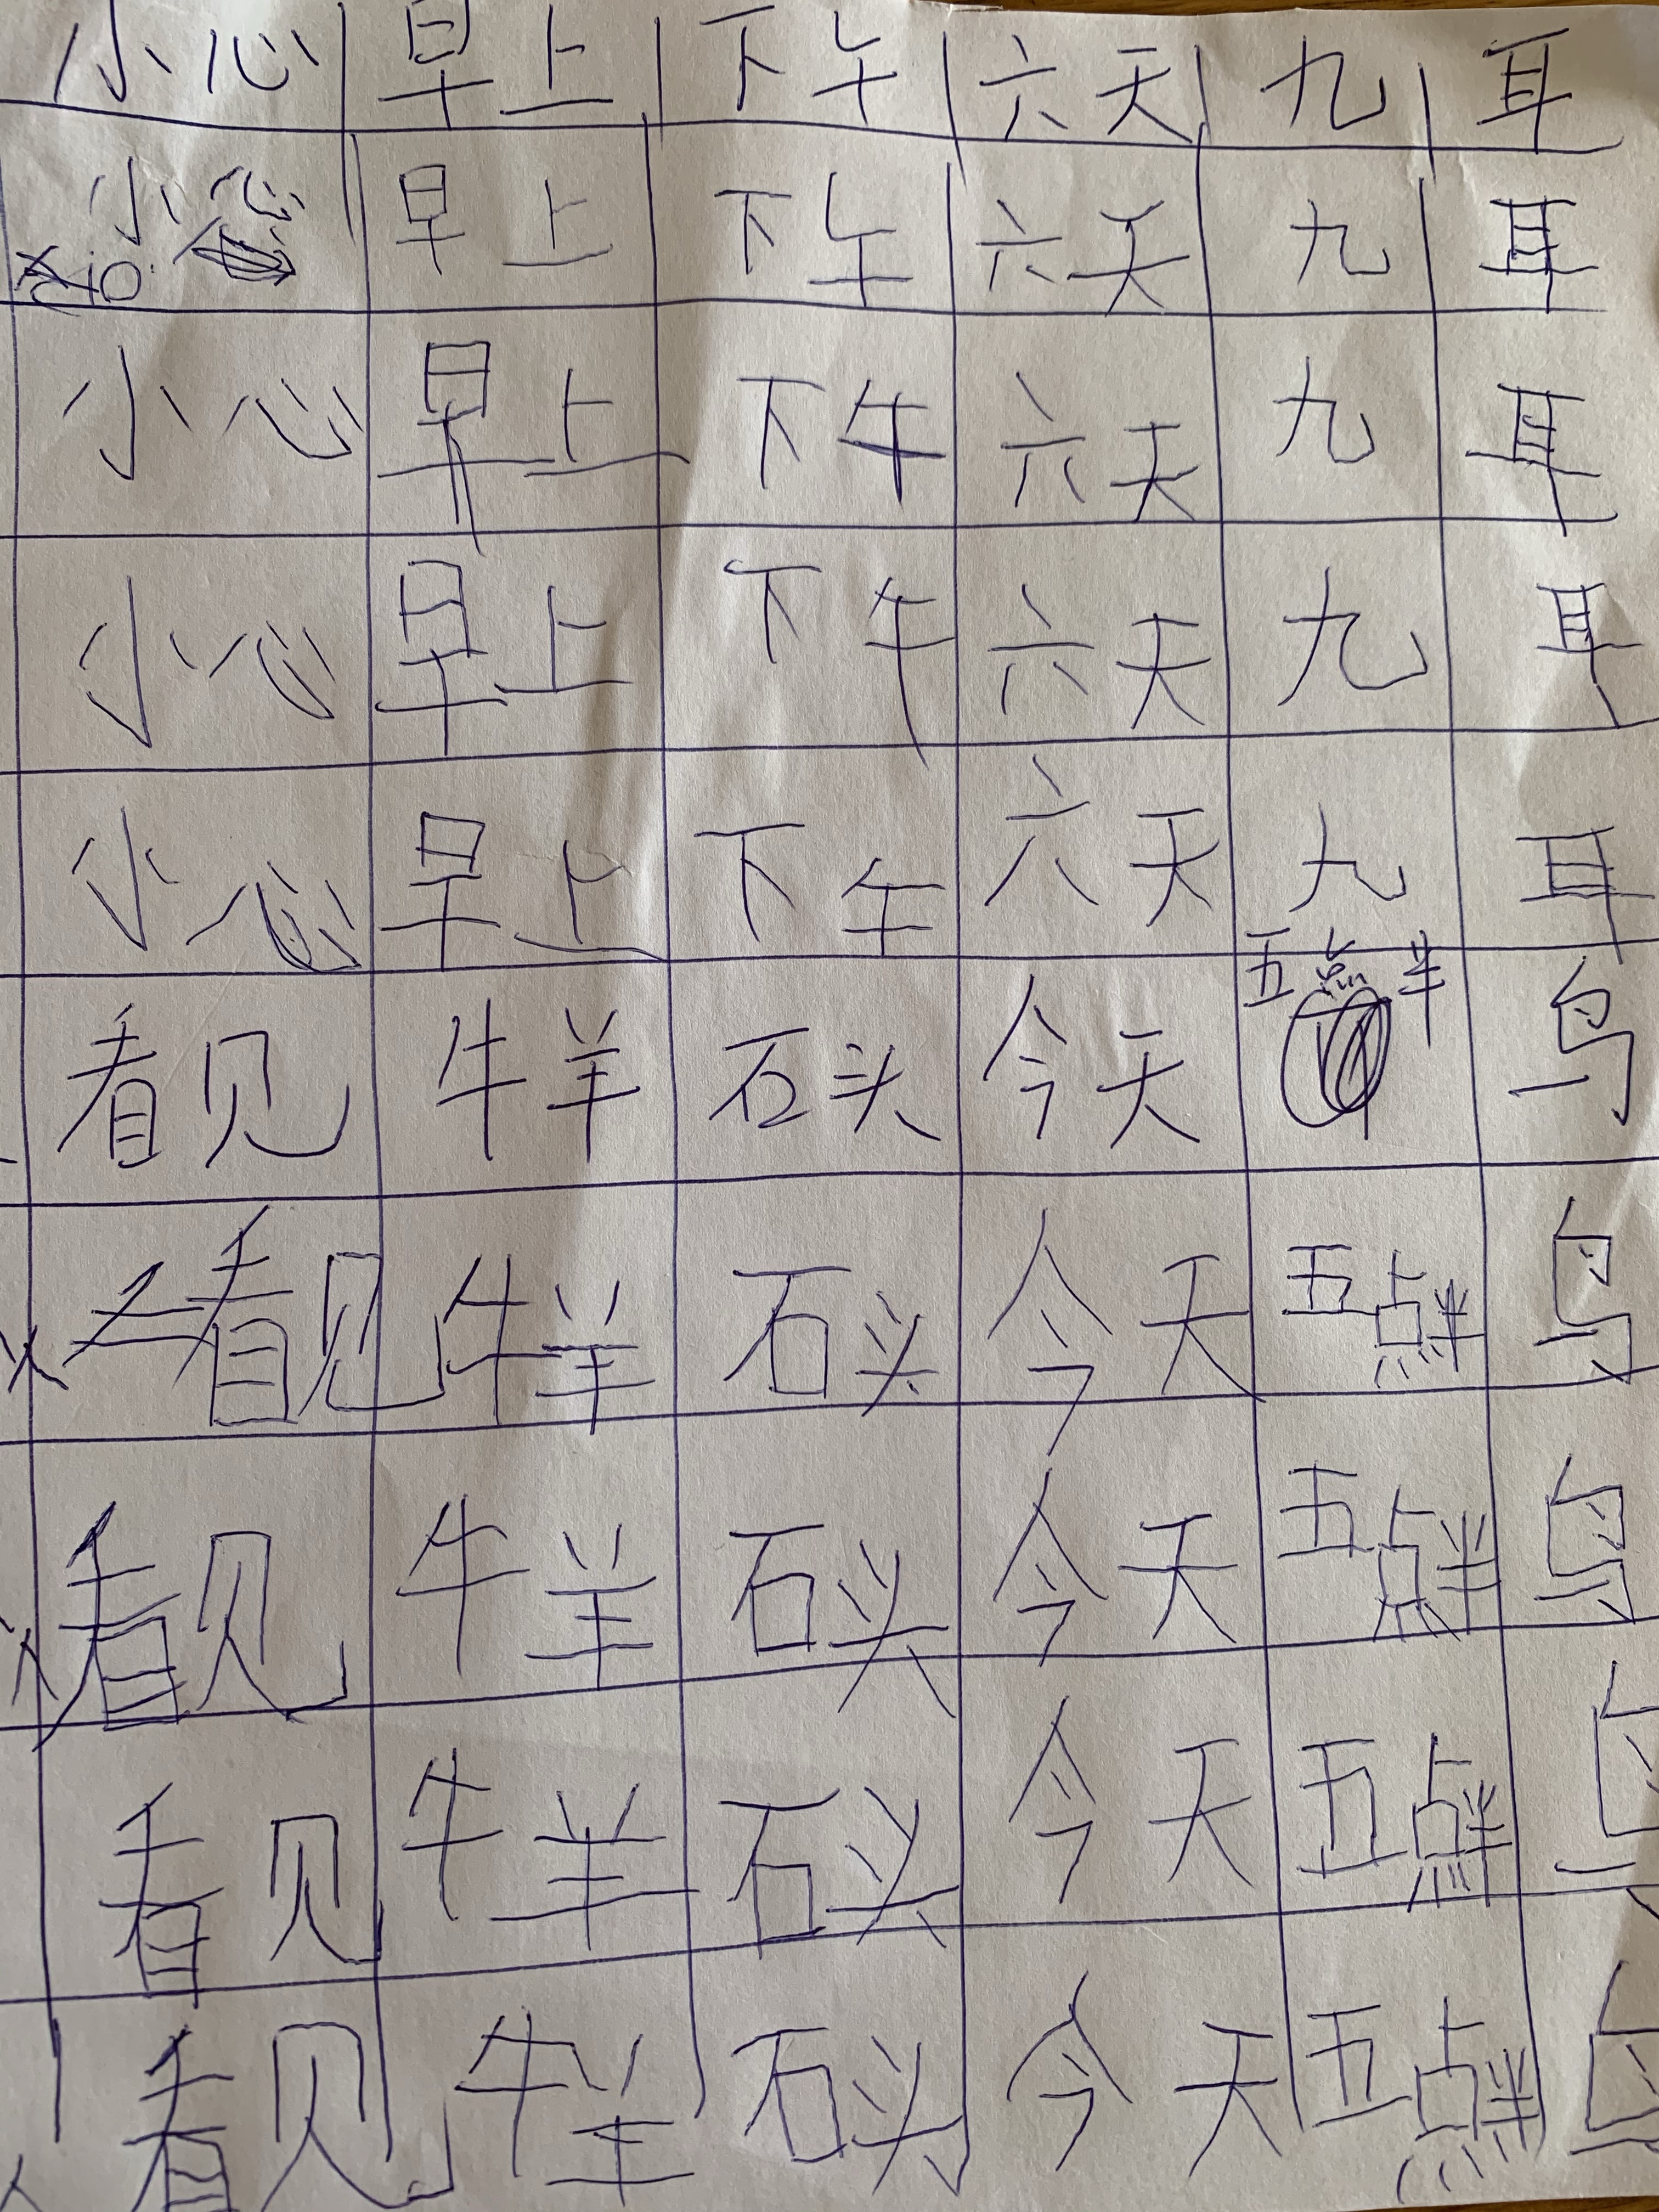 小心 早上 下午 六天 九 耳
小心 早上 下午 六天 九 耳
小心 早上 下午 六天 九 耳
小心 早上 下午 六天 九 耳
小心 早上 下午 六天 九 耳
看见 牛羊 石头 今天 五点半 鸟
看见 牛羊 石头 今天 五点半 鸟
看见 牛羊 石头 今天 五点半 鸟
看见 牛羊 石头 今天 五点半 鸟
看见 牛羊 石头 今天 五点半 鸟